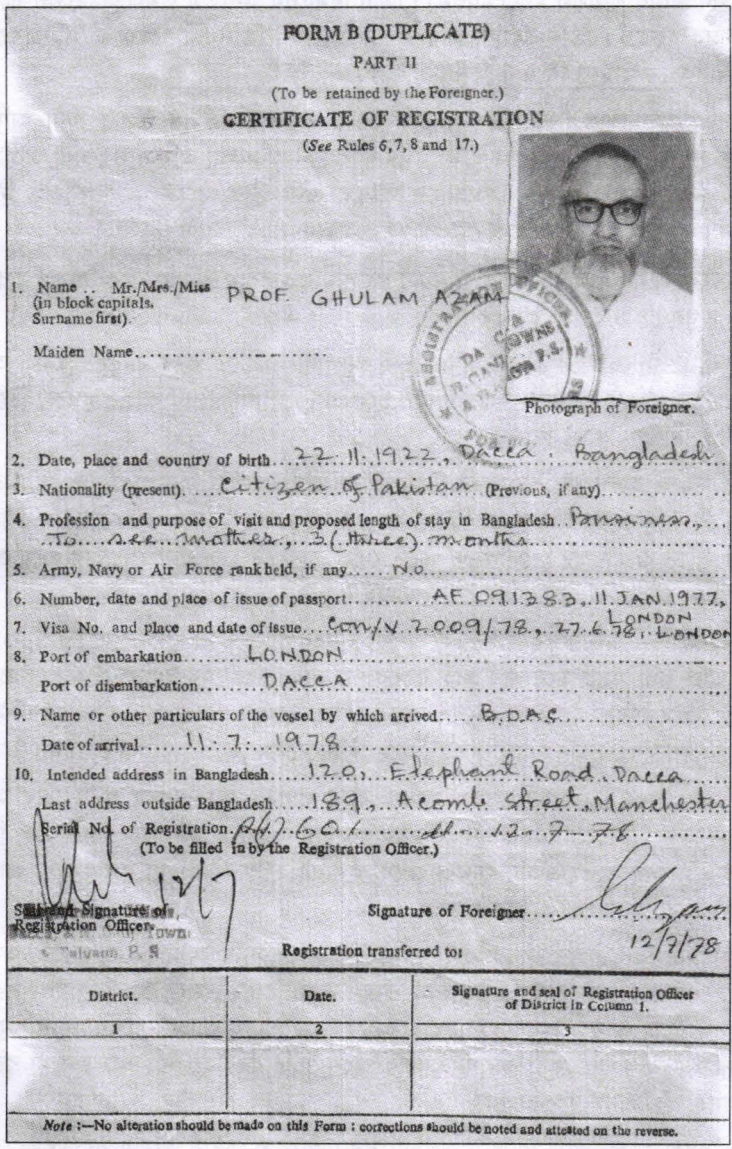 FORM B (DUPLICATE)
PART II
(To be retained by the Foreigner.)
CERTIFICATE OF REGISTRATION
(See Rules 6, 7, 8 and 17.)
1. Name .. Mr./Mrs./Miss PROF. GHULAM AZAM
(in block capitals.
Surname first).
Maiden Name
REGISTRATION OFFICER,
Photograph of Foreigner.
2. Date, place and country of birth 22.11.1922, Dacca. Bangladesh
3. Nationality (present). Citizen of Pakistan (Previous, if any)
4. Profession and purpose of visit and proposed length of stay in Bangladesh Bussiness,
To see mother, 3 (three) months
5. Army, Navy or Air Force rank held, if any No
6. Number, date and place of issue of passport AF 091383, 11 JAN 1977,
LONDON
7. Visa No. and place and date of issue Con/V 2009/78, 27.6.78, LONDON
8. Port of embarkation LONDON
Port of disembarkation DACCA
9. Name or other particulars of the vessel by which arrived
Date of arrival 11.7.1978
10. Intended address in Bangladesh 120, Elephant Road, Dacca
Last address outside Bangladesh 189, Acomb Street, Manchester
Serial No. of Registration 601 12.7.78
(To be filled in by the Registration Officer.)
12/7
Seal and Signature of
Registration Officer.
Signature of Foreigner
12/7/78
Registration transferred to:
District.
Date.
Signature and seal of Registration Officer
of District in Column 1.
1
2
3
Note :—No alteration should be made on this Form : corrections should be noted and attested on the reverse.